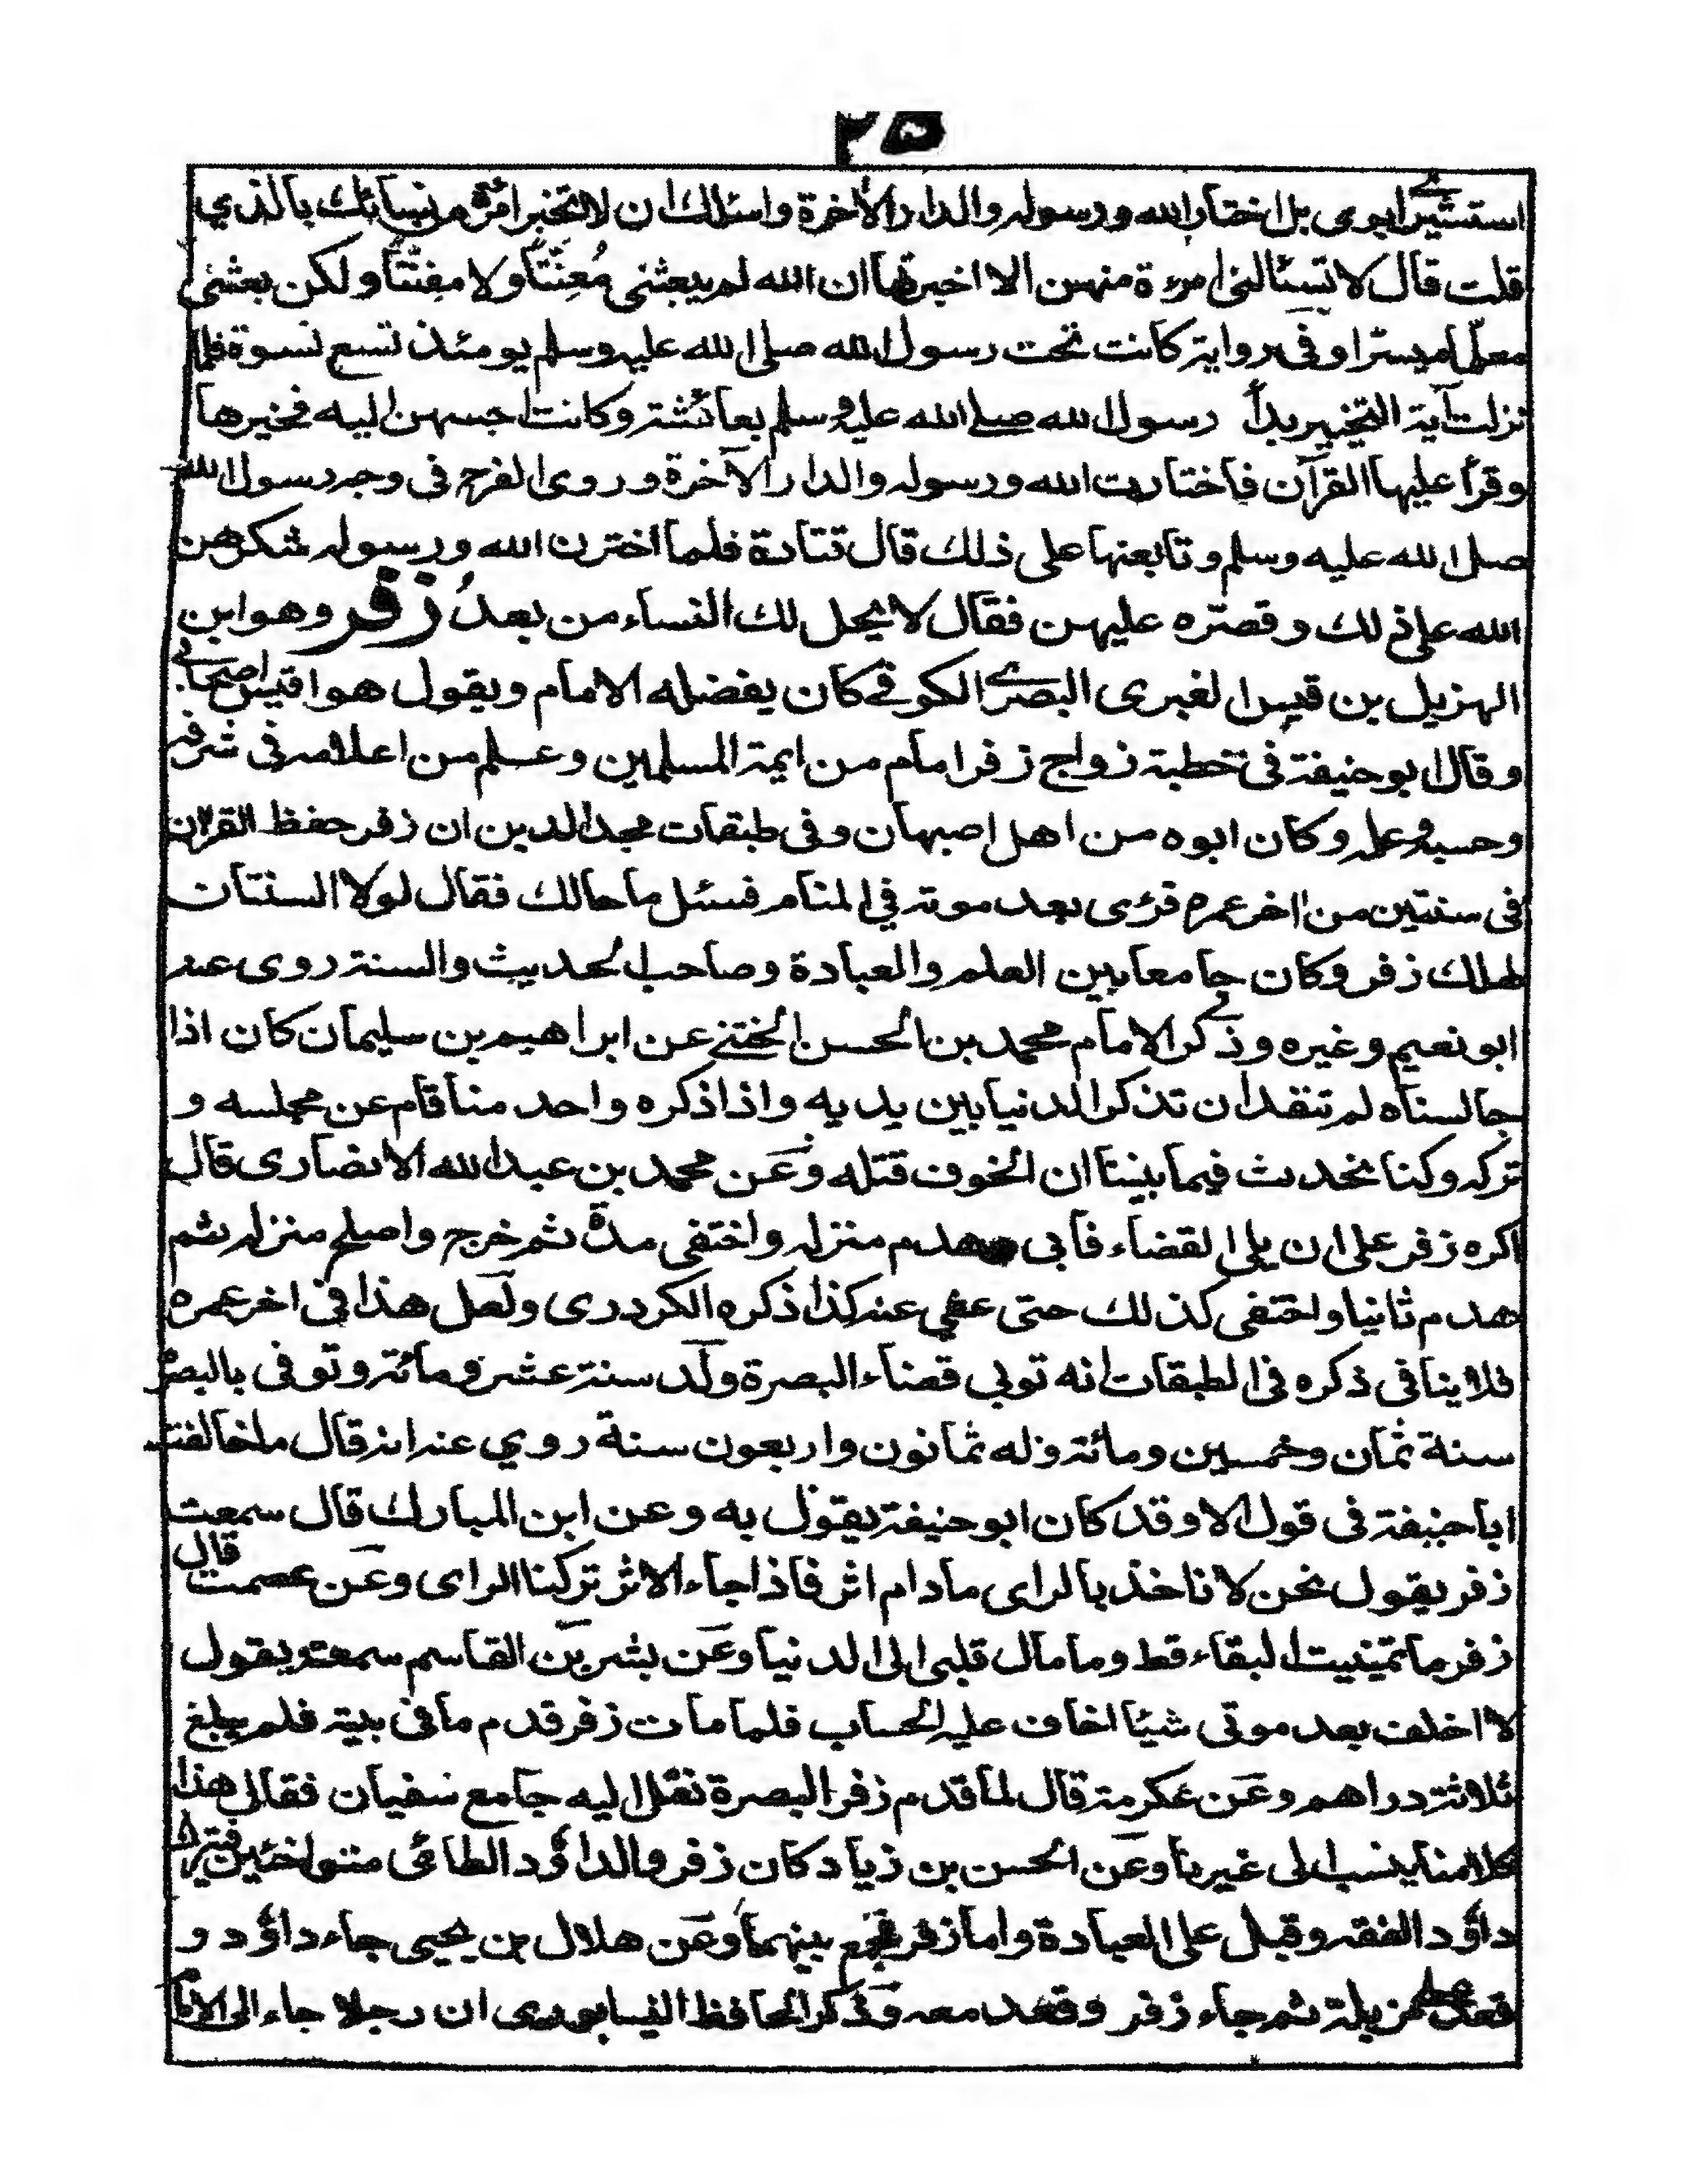 ٢٥
استشير ابوى بل اختار الله ورسوله والدار الآخرة واسئلك ان لا تخبر امرأة من نسائك بالذي
قلت قال لا تسئالنى امرءة منهن الا اخبرتها ان الله لم يبعثنى مُعنِّتا ولا مفتنا ولكن بعثنى
معلّما ميسّرا وفى رواية كانت تحت رسول الله صلى الله عليه وسلم يومئذ تسع نسوة فلما
نزلت آية التخيير بدأ رسول الله صلے الله عليه وسلم بعائشة وكانت احسهن اليه فخيرها
وقرأ عليها القرآن فاختارت الله ورسوله والدار الآخرة وروى الفرح فى وجه رسول الله
صلى الله عليه وسلم وتابعنها على ذلك قال قتادة فلما اخترن الله ورسوله شكرهن
الله على ذلك وقصّره عليهن فقال لا يحل لك النساء من بعدُ زفر وهو ابن
الهزيل بن قيس الغبرى البصرے الكوفے كان يفضله الامام ويقول هو اقيس اصحابے
وقال ابوحنيفة فى خطبة زواج زفر امام من ايمة المسلمين وعلم من اعلامه فى شرفه
وحسبه وعلمه وكان ابوه من اهل اصبهان وفى طبقات مجد الدين ان زفر حفظ القرآن
فى سنتين من اخر عمره فرئى بعد موته في المنام فسئل ما حالك فقال لولا السنتان
لهلك زفر وكان جامعا بين العلم والعبادة وصاحب الحديث والسنة روى عنه
ابو نعيم وغيره وذكر الامام محمد بن الحسن الختنے عن ابراهيم بن سليمان كان اذا
جالسناه لم تنقد ان تذكر الدنيا بين يديه واذا ذكره واحد منا قام عن مجلسه و
تركه وكنا نحدث فيما بيننا ان الخوف قتله وعن محمد بن عبد الله الانصارى قال
اكره زفر على ان يلى القضاء فابى هدم منزله واختفى مدة ثم خرج واصلح منزله ثم
هدم ثانيا واختفى كذلك حتى عفي عنه كذا ذكره الكردرى ولعل هذا فى اخر عمره
فلا ينافى ذكره فى الطبقات انه تولى قضاء البصرة ولد سنة عشر ومائة وتوفى بالبصرة
سنة ثمان وخمسين ومائة وله ثمانون واربعون سنة روي عنه انه قال ما خالفت
ابا حنيفة فى قول الا وقد كان ابو حنيفة يقول به وعن ابن المبارك قال سمعت
زفر يقول نحن لا ناخذ بالراى مادام اثر فاذا جاء الاثر تركنا الراى وعن عصمت قال
زفر ما تمنيت البقاء قط وما مال قلبى الى الدنيا وعن بشر بن القاسم سمعته يقول
لا اخلف بعد موتى شيئا اخاف عليه الحساب فلما مات زفر قدم ما فى بيته فلم يبلغ
ثلاثة دراهم وعن عكرمة قال لما قدم زفر البصرة نقل اليه جامع سفيان فقال هذا
كلامنا ينسب الى غيرنا وعن الحسن بن زياد كان زفر والداؤد الطائى متواخيين فترك
داؤد الفقه وقبل على العبادة واما زفر فجمع بينهما وعن هلال بن يحيى جاء داؤد و
قعد على مزبلة ثم جاء زفر وقعد معه وذكر الحافظ النيسابورى ان رجلا جاء الى الامام